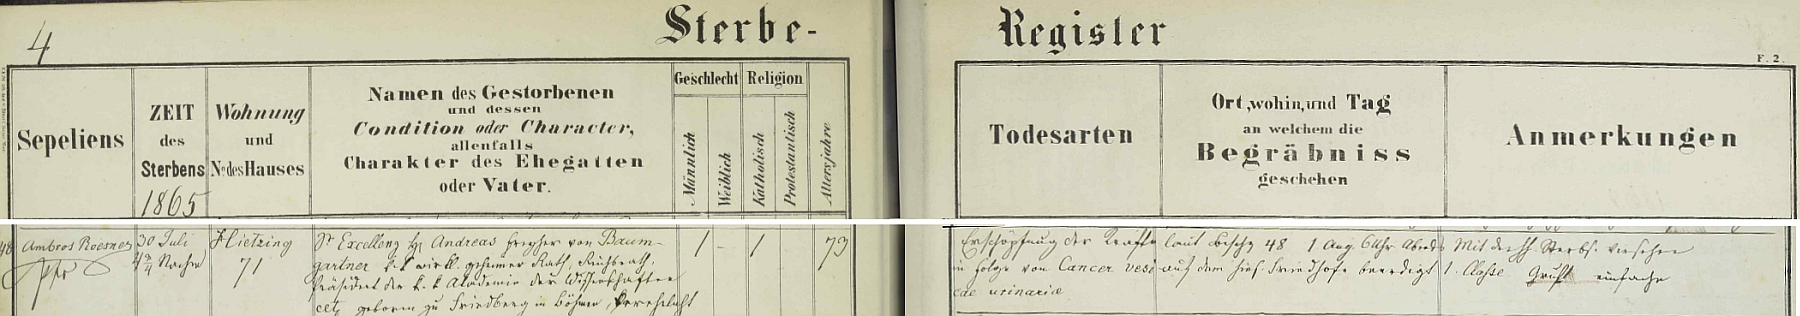 4
Sterbe-
Register
F. 2.
Sepeliens
ZEIT
des
Sterbens
1865
Wohnung
und
No des Hauses
Namen des Gestorbenen
und dessen
Condition oder Character,
allenfalls
Charakter des Ehegatten
oder Vater.
Geschlecht
Männlich
Weiblich
Religion
Katholisch
Protestantisch
Altersjahre
Todesarten
Ort, wohin, und Tag
an welchem die
Begräbniss
geschehen
Anmerkungen
48
Ambros Roesner
30 Juli
4 3/4 Nachm
Hietzing
71
Sr Excellenz H Andreas Freyherr von Baum-
gartner k.k. wirkl. geheimer Rath, Reichsrath,
Präsident der k. k Akademie der Wissenschaften
cet, geboren zu Friedberg in Böhmen, verehelicht
1
-
1
73
Erschöpfung der Kräfte
in Folge von Cancer vesi
cae urinariae
laut Beschg 48 1 Aug. 6 Uhr Abends
auf dem hies. Friedhofe beerdigt
Mit den hh. Sterbs. versehen
1. Classe Gruft einfache